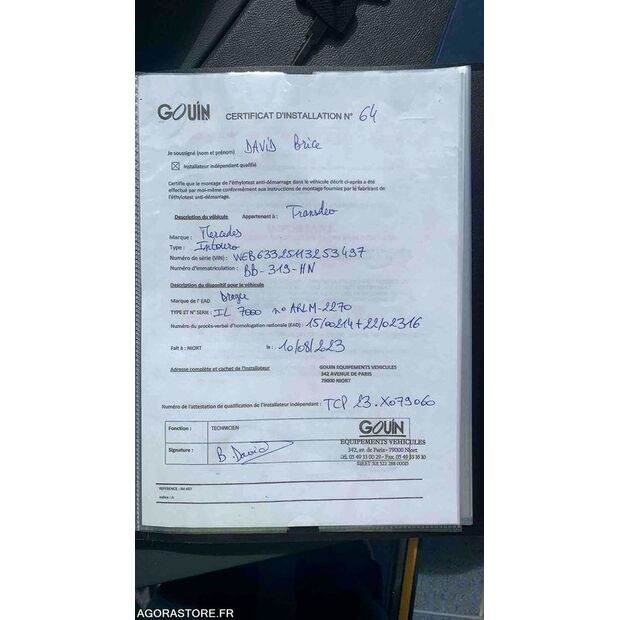 GOUIN CERTIFICAT D'INSTALLATION N° 64
Je soussigné (nom et prénom) DAVID Brice
☒ Installateur indépendant qualifié
Certifie que le montage de l'éthylotest anti-démarrage dans le véhicule décrit ci-après a été
effectué par moi-même conformément aux instructions de montage fournies par le fabricant de
l'éthylotest anti-démarrage.
Description du véhicule Appartenant à : Transdev
Marque : Mercedes
Type : Intouro
Numéro de série (VIN) : WEB63325113253497
Numéro d'immatriculation : BB-319-HN
Description du dispositif pour le véhicule
Marque de l'EAD
TYPE ET N° SERIE : IL 7000 n° ARLM-2270
Numéro du procès-verbal d'homologation nationale (EAD) : 15/00214+22/02316
Fait à : NIORT le : 10/08/2023
Adresse complète et cachet de l'installateur
GOUIN EQUIPEMENTS VEHICULES
342 AVENUE DE PARIS
79000 NIORT
Numéro de l'attestation de qualification de l'installateur indépendant : TCP 23.X079060
Fonction : TECHNICIEN
Signature : B. David
GOUIN
EQUIPEMENTS VEHICULES
342, av. de Paris - 79000 Niort
Tél. 05 49 33 00 29 - Fax. 05 49 33
SIRET 301 522 288 00015
REFERENCE :
Indice : A
AGORASTORE.FR